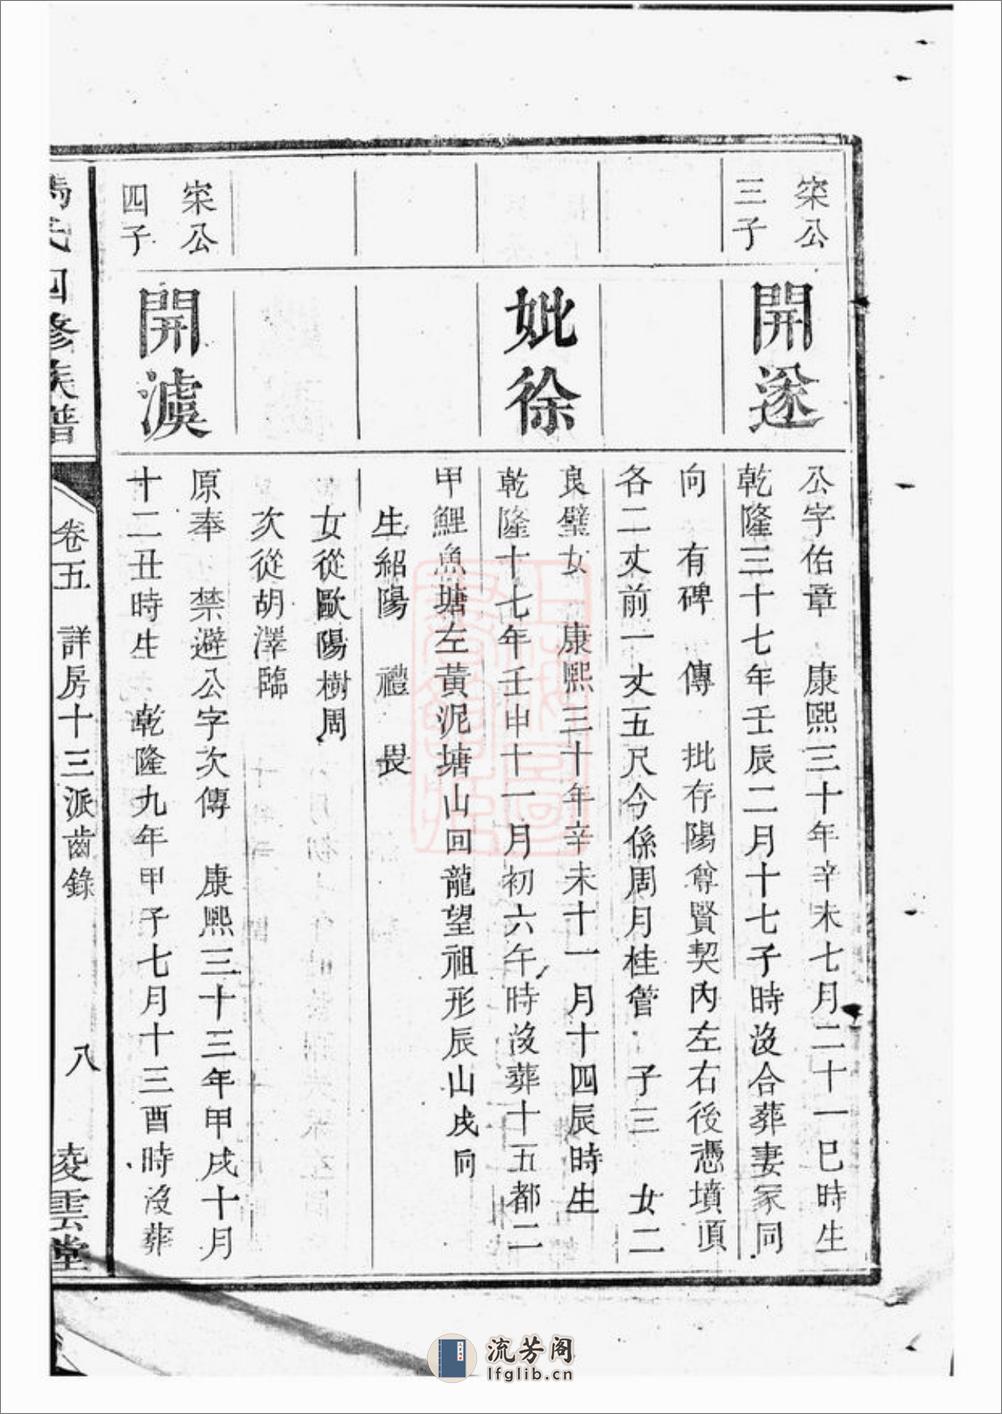 宷公
三子
開邃
公字佑章　康熙三十年辛未七月二十一巳時生
乾隆三十七年壬辰二月十七子時沒合葬妻冢同
向　有碑　傳　批存陽尊賢契內左右後憑墳頂
各二丈前一丈五尺今係周月桂管　子三　女二
妣徐
良璧女　康熙三十年辛未十一月十四辰時生
乾隆十七年壬申十一月初六午時沒葬十五都二
甲鯉魚塘左黃泥塘山回龍望祖形辰山戌向
生紹陽　禮　畏
女從歐陽樹周
次從胡澤臨
宷公
四子
開澞
原奉　禁避公字次傳　康熙三十三年甲戌十月
十二丑時生　乾隆九年甲子七月十三酉時沒葬
氏四修族譜
卷五　詳房十三派齒錄
八
凌雲堂
流芳阁
lfglib.cn